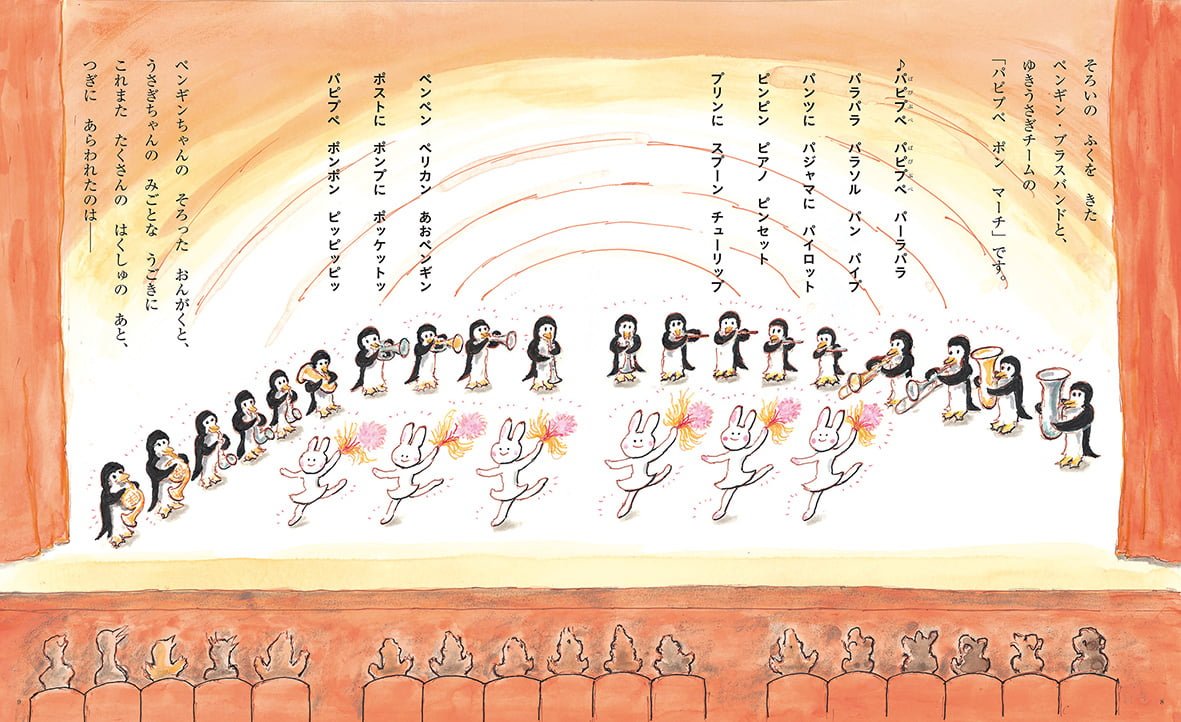 そろいの ふくを きた
ペンギン・ブラスバンドと、
ゆきうさぎチームの
「パピプペ ポン マーチ」です。
♪パピプペ パピプペ パーラパラ
パラパラ パラソル パン パイプ
パンツに パジャマに パイロット
ピンピン ピアノ ピンセット
プリンに スプーン チューリップ
ペンペン ペリカン あおペンギン
ポストに ポンプに ポッケットッ
パピプペ ポンポン ピッピッピッ
ペンギンちゃんの そろった おんがくと、
うさぎちゃんの みごとな うごきに
これまた たくさんの はくしゅの あと、
つぎに あらわれたのは——
9
8